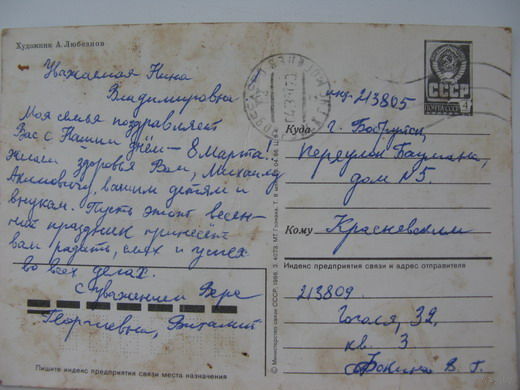 Художник А. Любезнов
Уважаемая Нина
Владимировна
Моя семья поздравляет
Вас с Нашим днём – 8 Марта!
Желаем здоровья Вам, Михаилу
Акимовичу, вашим детям и
внукам. Пусть этот весен-
ний праздник принесёт
вам радость, смех и успех
во всех делах.
С уважением Вера
Георгиевна, Виталий
Пишите индекс предприятия связи места назначения
© Министерство связи СССР, 1986.
СССР
ПОЧТА
4
инд. 213805
Куда г. Бобруйск,
переулок Баумана,
дом №5.
Кому Красневским
Индекс предприятия связи и адрес отправителя
213809
Гоголя, 32,
кв. 3
В. Г.